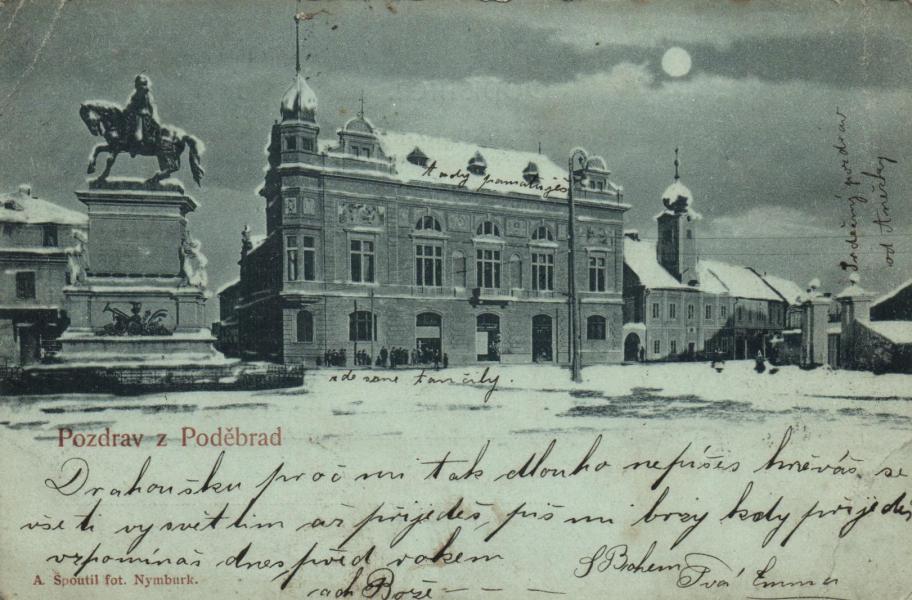 tady pamatuješ
Srdečný pozdrav
od Anežky
zde sme tančily.
Pozdrav z Poděbrad
Drahoušku proč mi tak dlouho nepíšeš hněváš se
vše ti vysvětlim až přijedeš, piš mi brzy kdy přijedeš
vzpomínáš dnes před rokem
S Bohem
Tvá Emma
A. Spoutil fot. Nymburk.
ach Bože - - - -